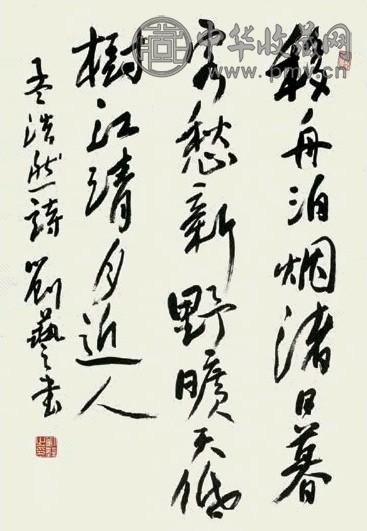 移舟泊烟渚日暮
客愁新野旷天低
树江清月近人
孟浩然诗 刘艺书
中华收藏网
www.pmv.cn